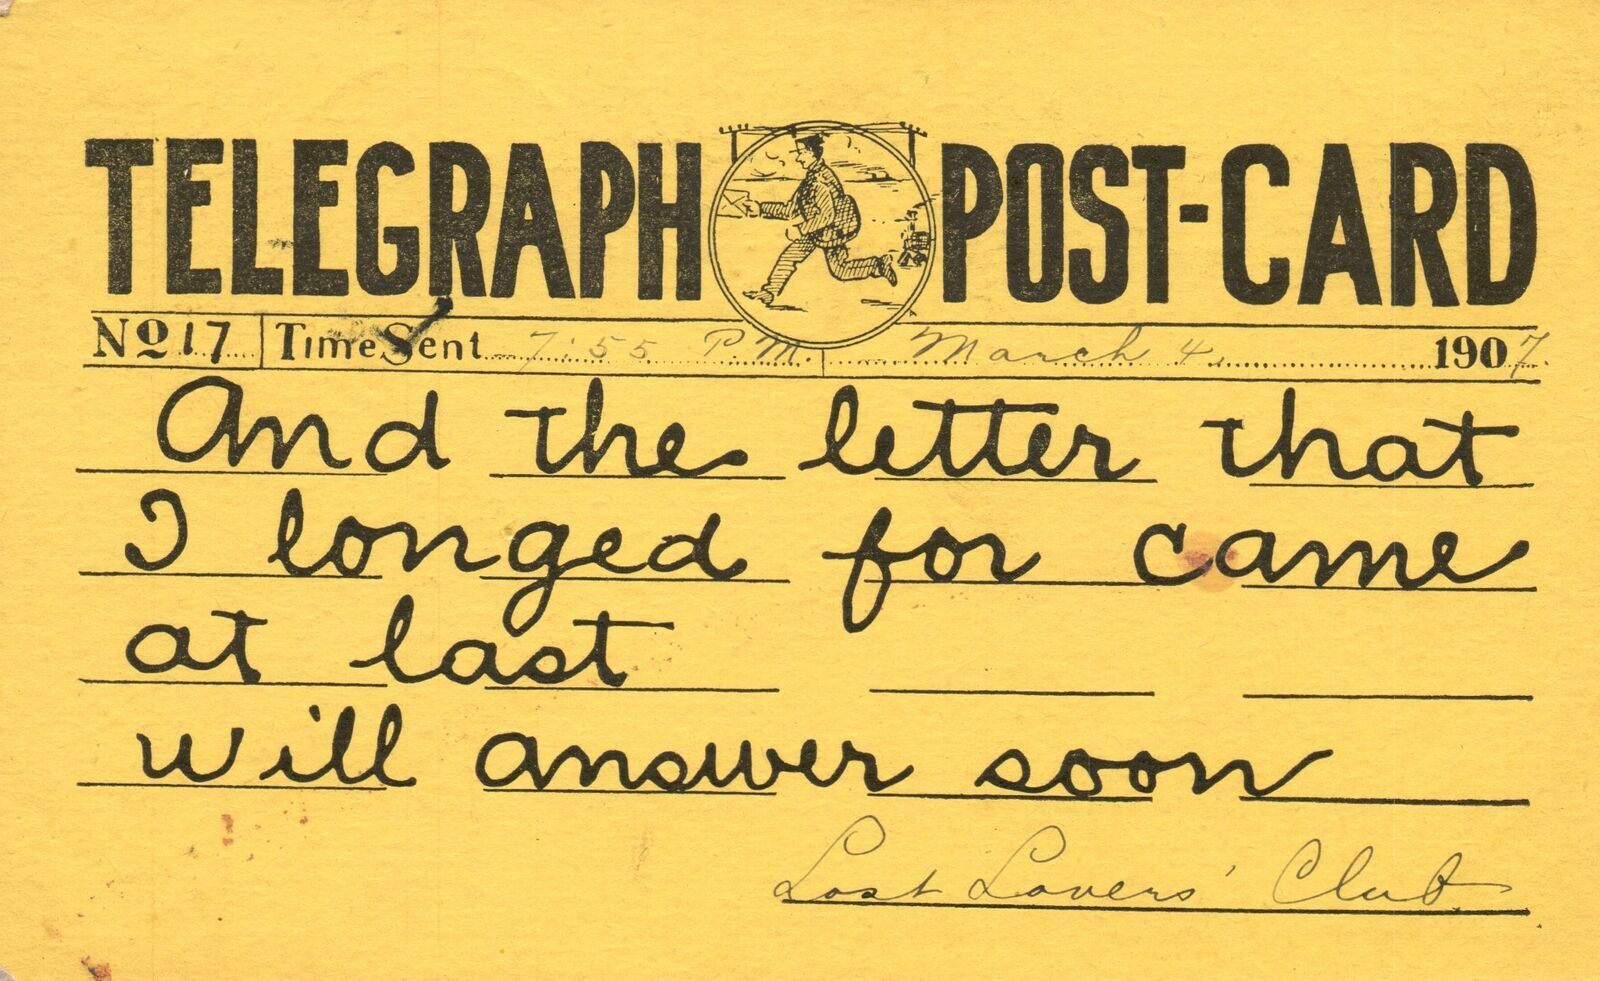 TELEGRAPH POST-CARD
No 17 Time Sent 7:55 P.M. March 4, 1907.
And the letter that
I longed for came
at last
will answer soon
Lost Lovers' Club.